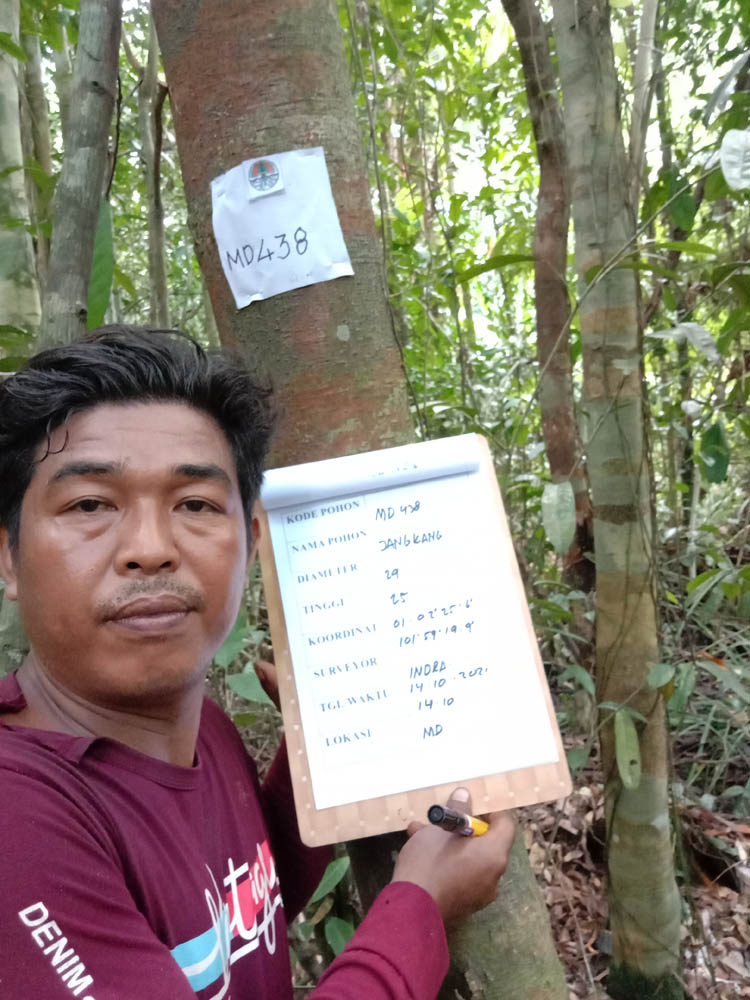 MD438
KODE POHON MD 438
NAMA POHON JANGKANG
DIAMETER 29
TINGGI 25
KOORDINAT 01·02'25·6'
101·59·19·9'
SURVEYOR INDRA
TGL/WAKTU 14·10·2021
14·10
LOKASI MD
DENIM